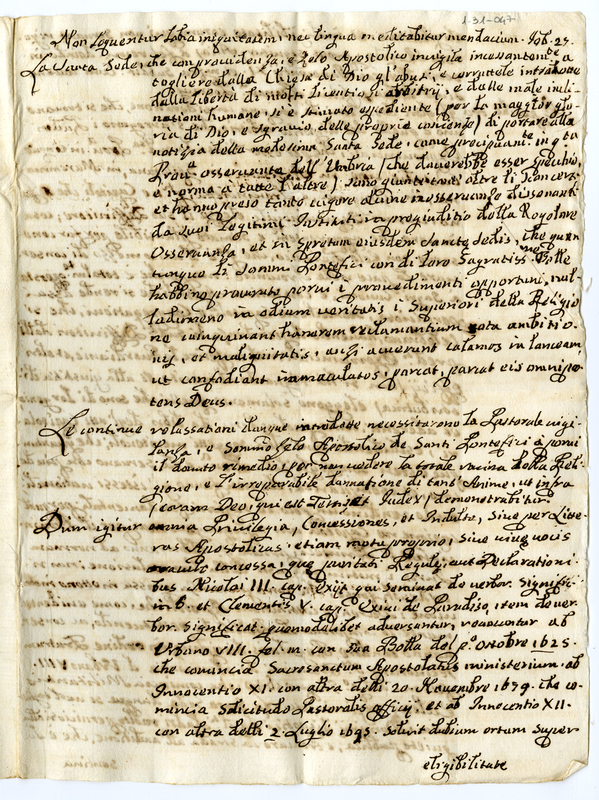 1.31-047
Non loquentur labia iniquitatem, nec lingua meditabitur mendacium. Job. 27.
La Santa Sede, che con providenza, e zelo Apostolico invigila incessantem.te a
togliere dalla Chiesa di Dio gl'abusi, e corruttele introdotte
dalla libertà di molti licentiosi arbitrij, e dalle male incli-
nationi humane, si è stimato espediente (per la maggior glo-
ria di Dio, e sgravio delle proprie conscienze) di portare alla
notizia della medesima Santa Sede, come precipuam.te in q.ta
Prov.a osservante dell'Umbria (che dovrebbe esser specchio,
e norma a tutte l'altre) sino giunte tant'oltre li sconcerti
et hanno preso tanto vigore alcune inosservanze dissonanti
da suoi legitimi Instituti in pregiuditio della Regolare
Osservanza, et in spretum eiusdem Sanctae Sedis, che quan
tunque li Sommi Pontefici con di loro Sagratiss.me Bolle
habbino procurato porvi i provedimenti opportuni, nul
ladimeno in odium veritatis i Superiori della Religio
ne coinquinant honorem reclamantium nota ambitio-
nis, et malignitatis, ac si acuerunt calamos in lanceam,
ut confodiant immaculatos, parcat, parcat eis omnipo-
tens Deus.
Le continue relassationi dunque introdotte necessitarono la Pastorale vigi-
lanza, e sommo zelo Apostolico de Santi Pontefici à porvi
il dovuto remedio, per non vedere la totale ruina della Reli-
gione, e l'irreparabile dannatione di tant'Anime, ut infra
(coram Deo, qui est Testis, et Iudex) demonstrabitur.
Dum igitur omnia Privilegia, Concessiones, et Indulta, sive per Litte-
ras Apostolicas, etiam motu proprio, sive vivae vocis
oraculo concessa, quae puritati Regulae, aut Declarationi-
bus Nicolai III. cap. Exijt qui seminat de verbor. signific.
in 6. et Clementis V. cap. Exivi de Paradiso, item de ver-
bor. significat. quomodolibet adversantur, revocantur ab
Urbano VIII. fel. m. con sua Bolla del p.o Ottobre 1625.
che comincia Sacrosanctum Apostolatus ministerium. ab
Innocentio XI. con altra delli 20. Novembre 1679. che co-
mincia Solicitudo Pastoralis officij, et ab Innocentio XII.
con altra delli 2. Luglio 1695. solvit dubium ortum super
eligibilitate